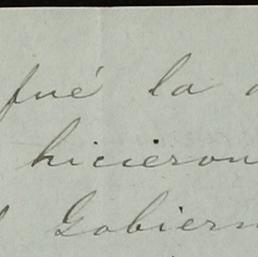 fué la
hicieron
Gobiern